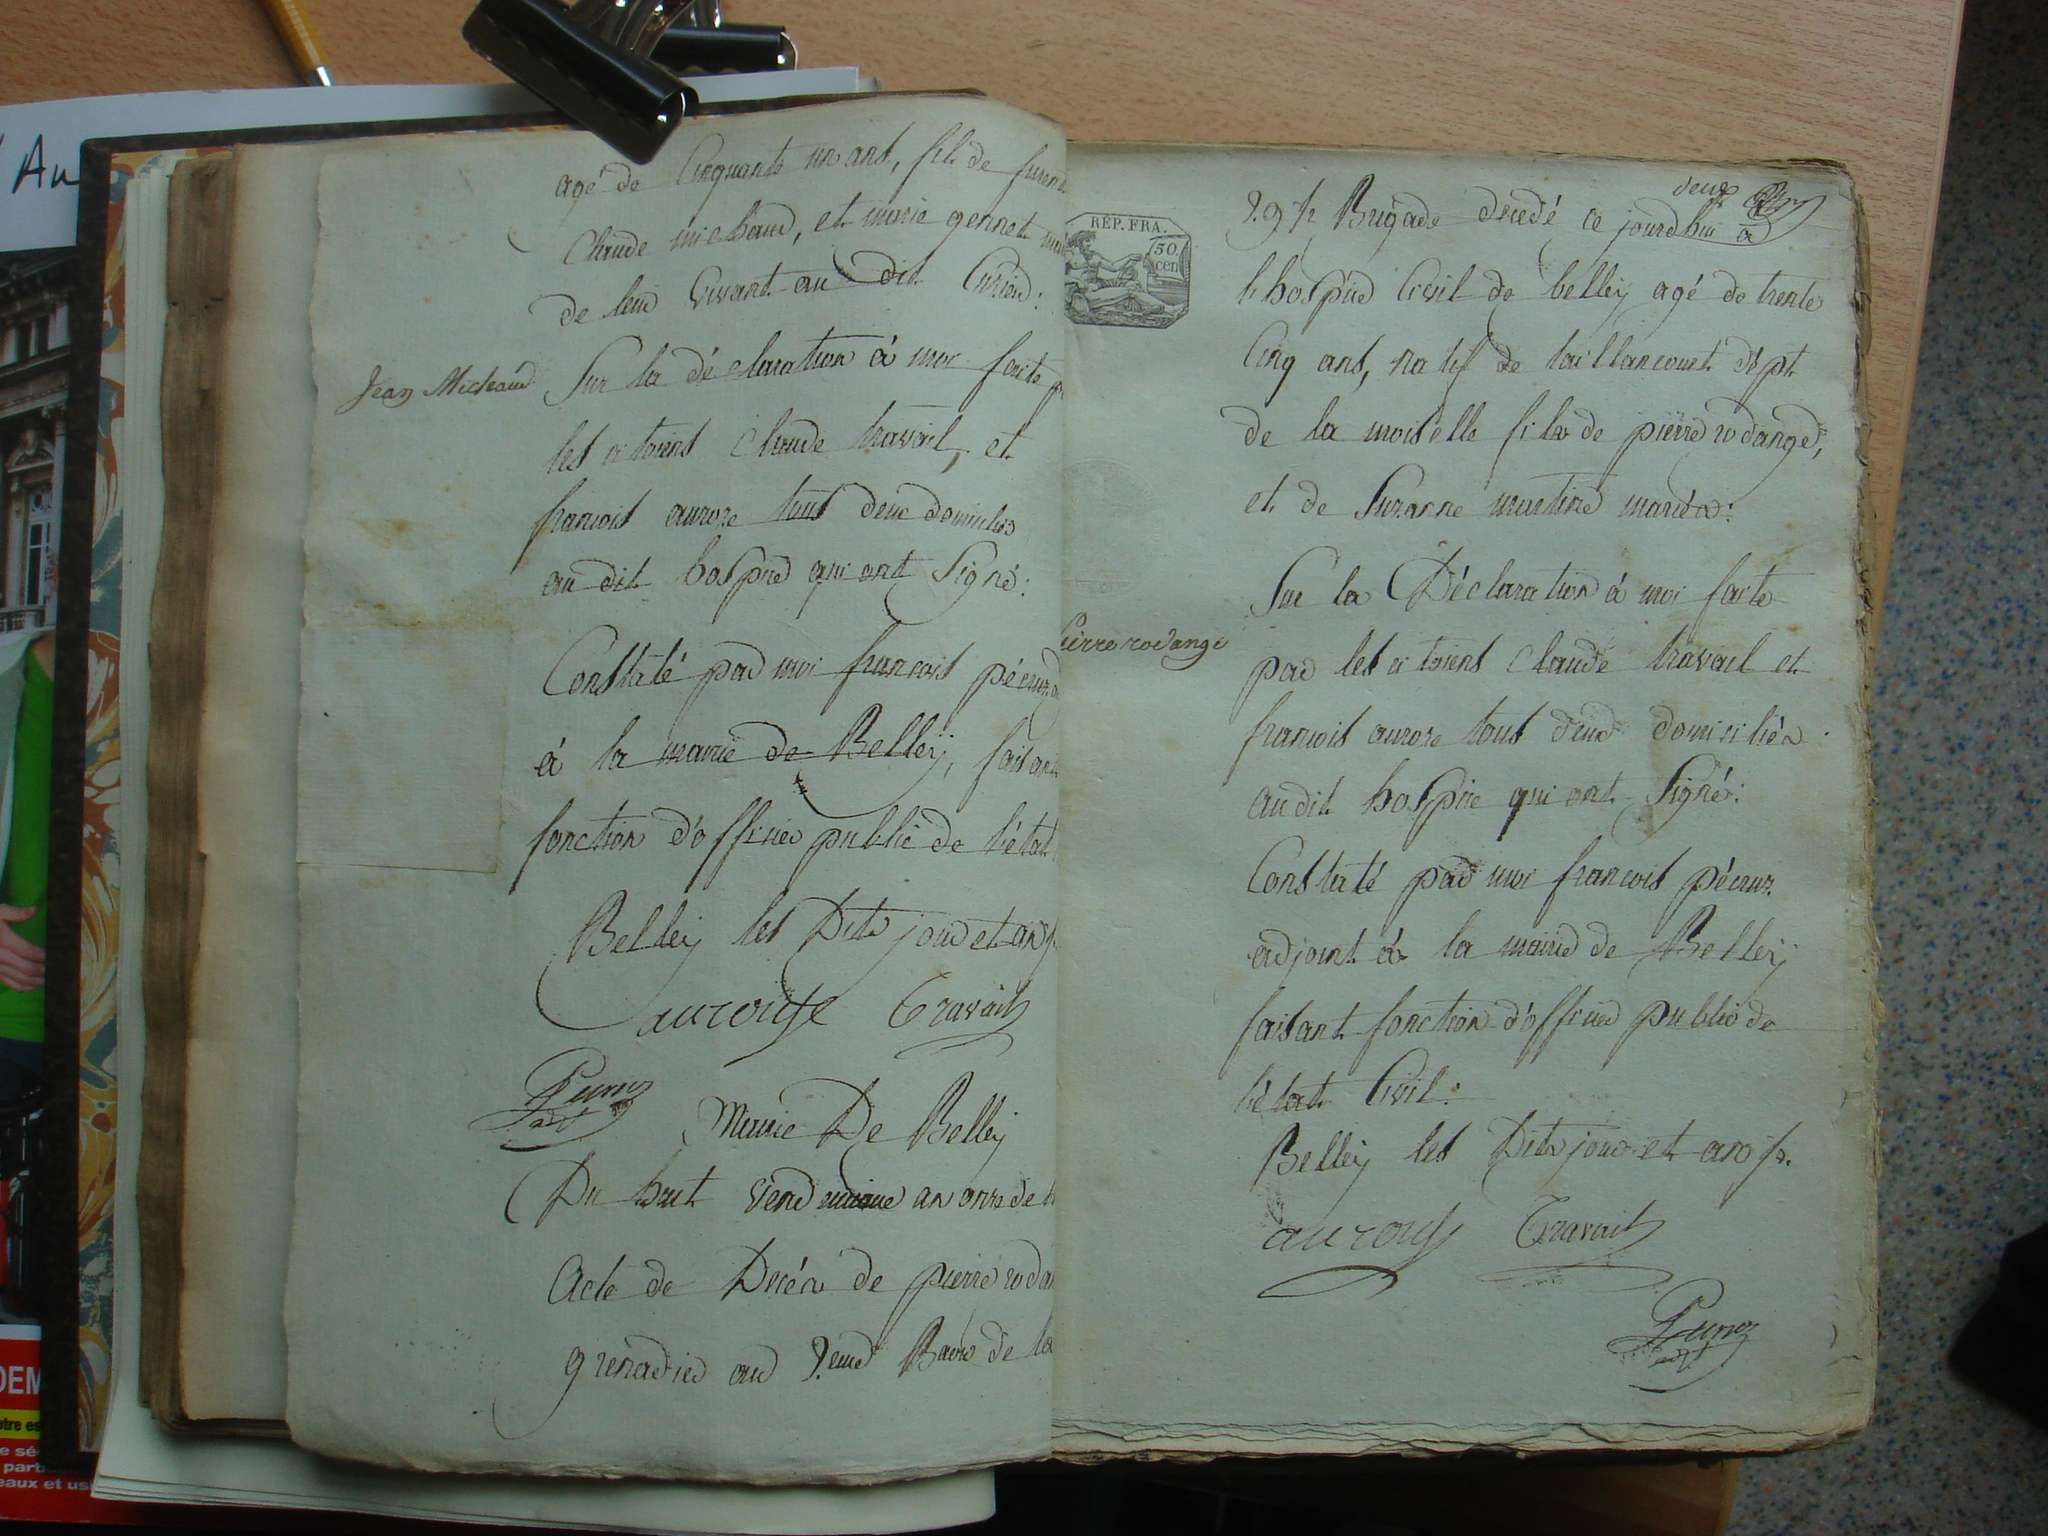 Au
agé de Cinquante un ans, fils de
Claude michaud, et marie gennet
de leur vivant au dit
Jean Michaud
Sur la déclaration à moi faite
les citoiens Claude travail, et
francois aurore tous deux domiciliés
au dit hospice qui ont Signé:
Constaté par moi francois pécruz
à la mairie de Belleÿ, faisant
fonction d'officier public de l'état
Belleÿ les Dits jour et an
Travail
Mairie De Belleÿ
Du huit vendemiaire an onze de
Acte de Décés de pierre
grenadier au 2.eme Baon de la
RÉP. FRA.
50.
cen
deux
Brigade decedé ce jourdhui à
l'hospice Civil de belleÿ agé de trente
Cinq ans, natif de taillancourt dépt.
de la moiselle fils de pierre rodange,
et de Suzanne martine mariés:
Pierre rodange
Sur la Déclaration à moi faite
par les citoiens Claude travail et
francois aurore tous deux domiciliés
audit hospice qui ont Signé:
Constaté par moi francois pécruz
adjoint à la mairie de Belleÿ
faisant fonction d'officier public de
l'état Civil:
Belleÿ les Dits jour et an
Travail
DEM
otre es
e sé
parti
eaux et us